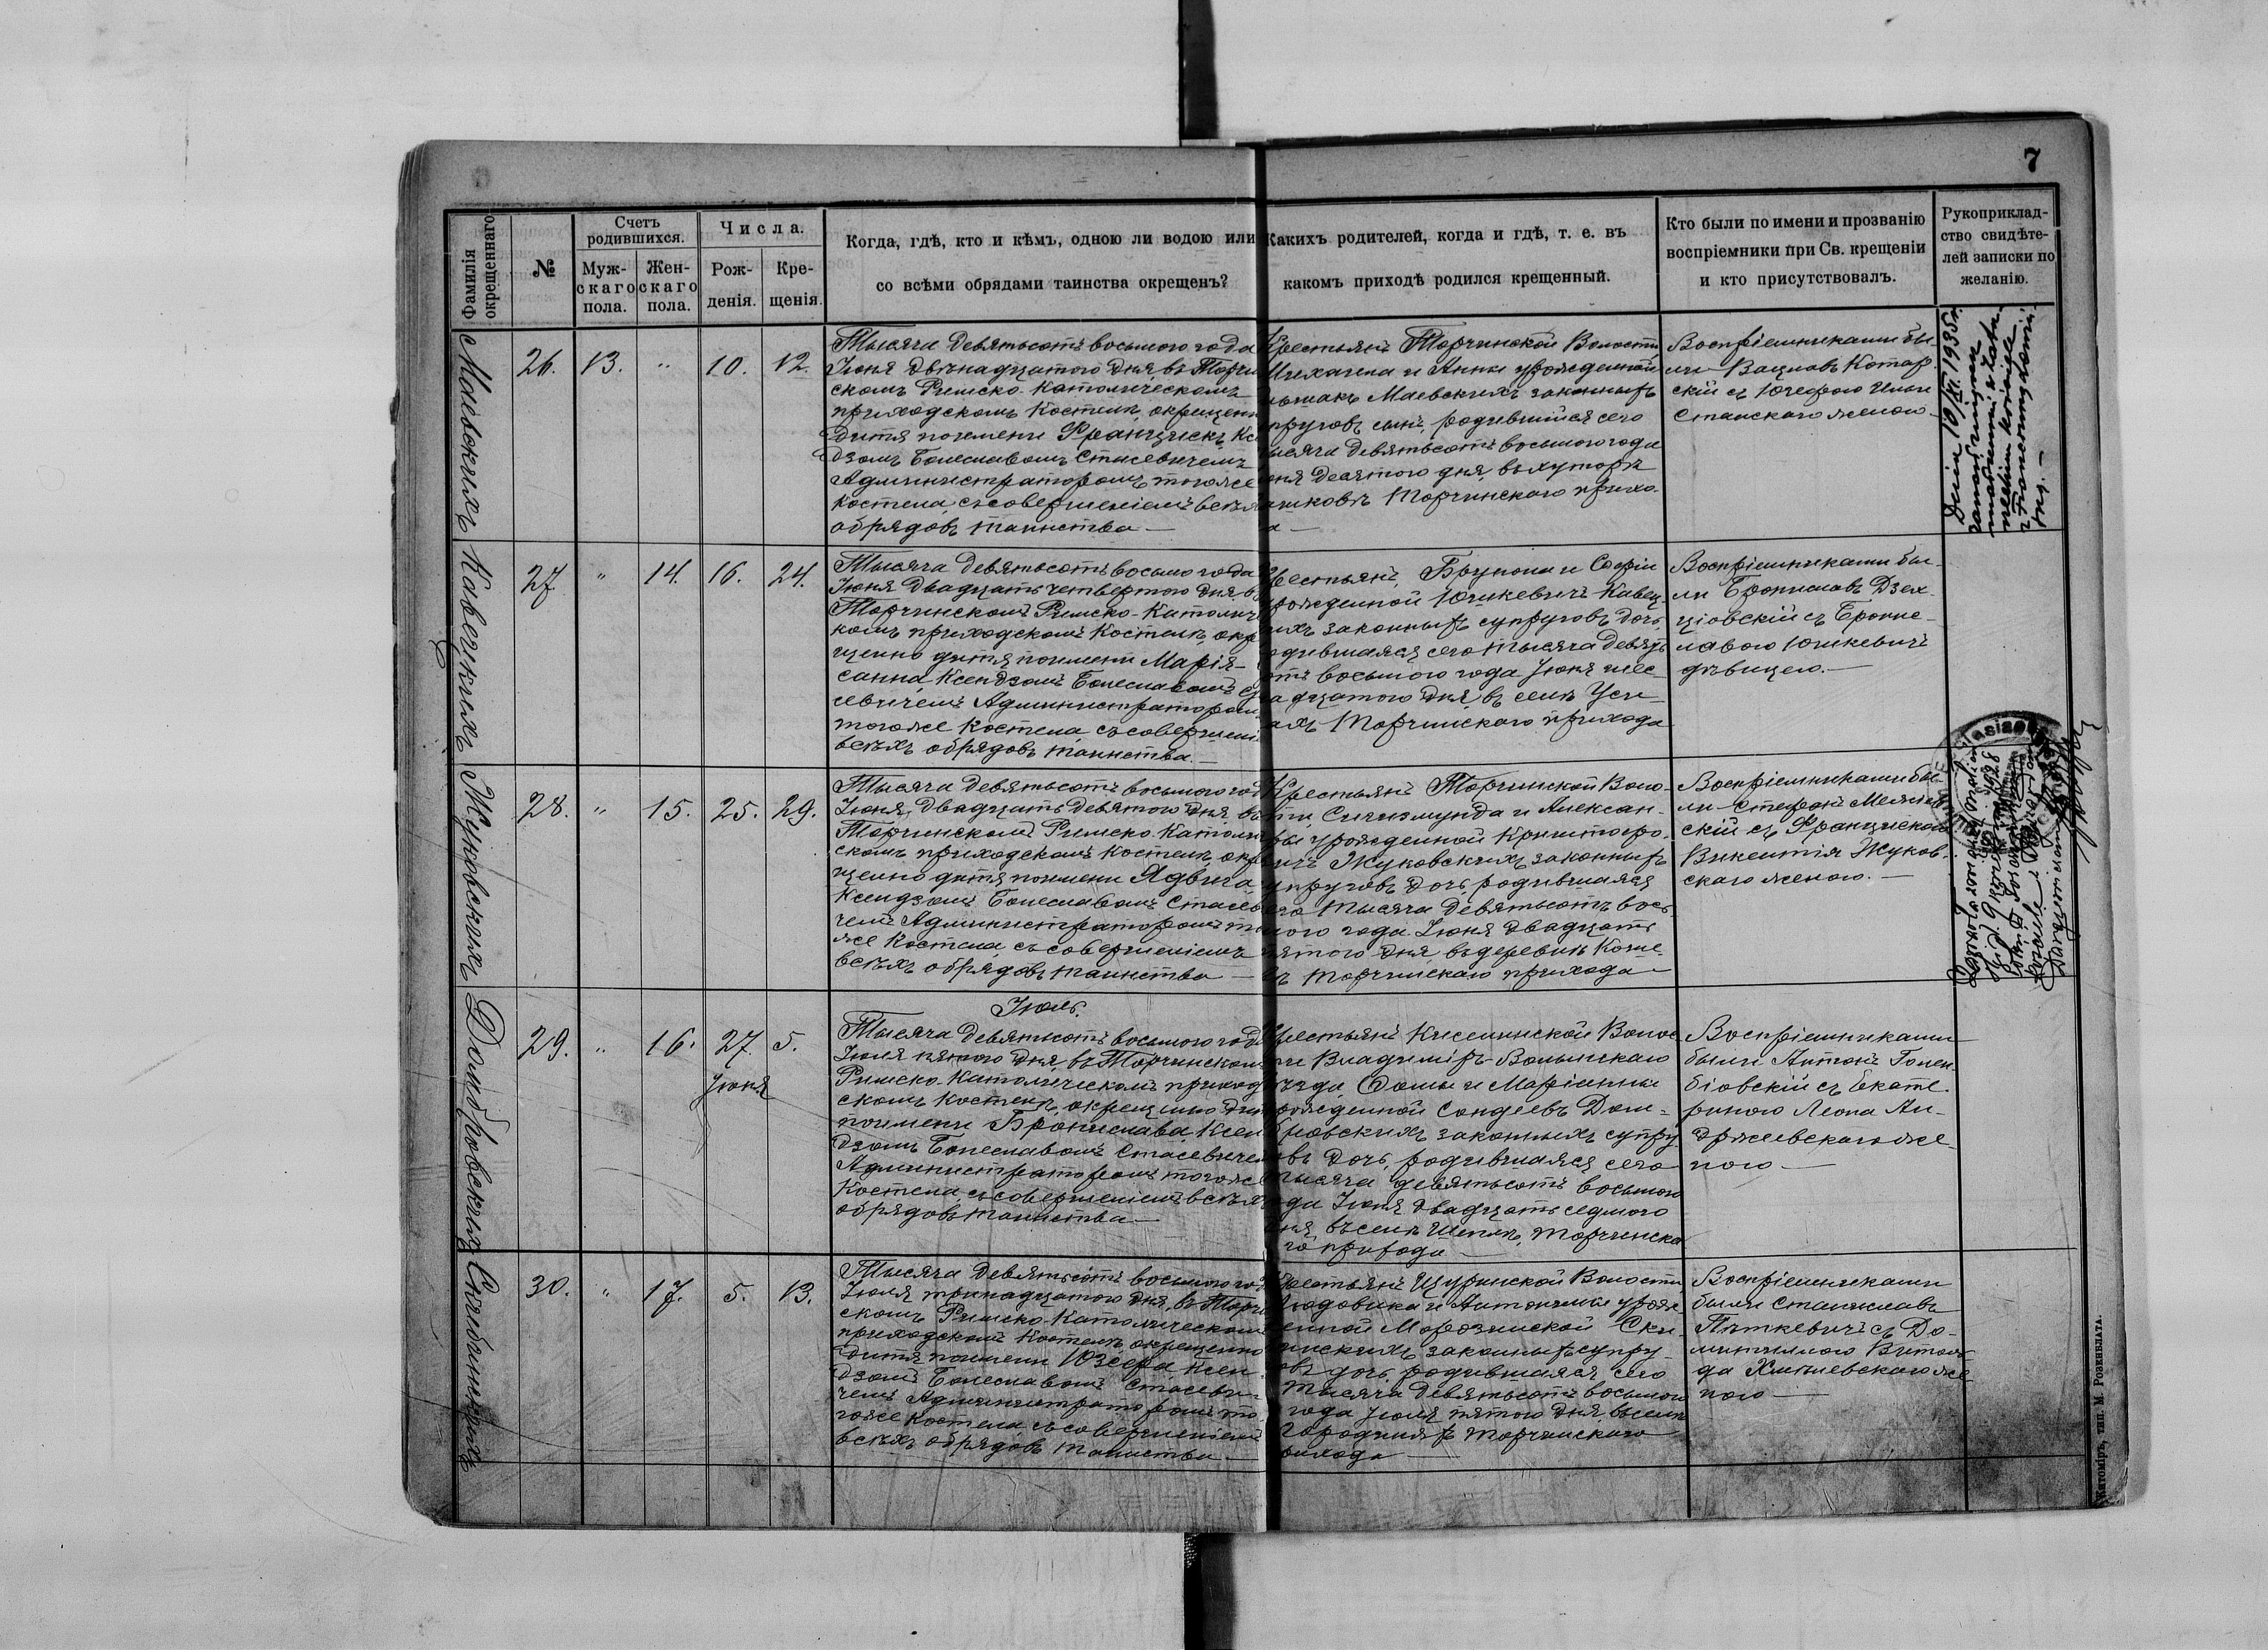 7
Фамилія окрещеннаго.
№
Счетъ родившихся.
Мужскаго пола.
Женскаго пола.
Числа.
Рожденія.
Крещенія.
Когда, гдѣ, кто и кѣмъ, одною ли водою или
со всѣми обрядами таинства окрещенъ?
Какихъ родителей, когда и гдѣ, т. е. въ
какомъ приходѣ родился крещенный.
Кто были по имени и прозванію
воспріемники при Св. крещеніи
и кто присутствовалъ.
Рукоприклад-
ство свидѣте-
лей записки по
желанію.
Маевскихъ
26. 13. " 10. 12.
Тысяча девятьсотъ восьмого года
Іюня двѣнадцатого дня въ Торчи
скомъ Римско-Католическомъ
приходскомъ Костелѣ окрещено
дитя по имени Францискъ Кс
дзомъ Болеславомъ Стасевичемъ
Администраторомъ тогоже
Костела, съ совершеніемъ всѣхъ
обрядовъ таинства —
Крестьянъ Торчинской Волости
Михаила и Анны урожденной
Маевскихъ законныхъ
пруговъ сынъ, родившійся сего
тысяча девятьсотъ восьмого года
юня десятого дня, въ хуторѣ
Торчинскаго прихо-
а —
Воспріемниками бы-
ли Вацлавъ Котар
скій съ Юзефою Ильи
Станскаго женою
Dnia 10/VI. 1935 r.
27 " 14. 16. 24.
Кавецкихъ
Тысяча девятьсотъ восьмо года
Іюня двадцать четвертого дня в
Торчинскомъ Римско-Католич
комъ приходскомъ Костелѣ, окре
щено дитя по имени Марія-
санна, Ксендзомъ Болеславомъ С
севичемъ Администраторомъ
тогоже Костела, съ совершені
всѣхъ обрядовъ таинства. —
рестьянъ, Бруноны и Софіи
урожденной Юшкевичъ Кавец
ихъ законныхъ супруговъ дочь,
одившаяся сего тысяча девять
отъ восьмого года Іюня шес-
надцатого дня, въ селѣ Уси-
ахъ Торчинскаго прихода
Воспріемниками бы-
ли Брониславъ Дзех-
ціовскій съ Брони-
лавою Юшкевичъ
дѣвицею. —
Жуковскихъ
28. " 15. 25. 29.
Тысяча девятьсотъ восьмого го
Іюня, двадцать девятого дня, въ
Торчинскомъ Римско-Католич
скомъ приходскомъ Костелѣ, окре
щено дитя по имени Ядвига
Ксендзомъ Болеславомъ Стасев
чемъ Администраторомъ то
же Костела, съ совершеніемъ
всѣхъ обрядовъ таинства —
Крестьянъ Торчинской Воло-
сти, Сигизмунда и Алексан-
ры урожденной Криштофо-
вичъ Жуковскихъ законныхъ
упруговъ дочь, родившаяся
его тысяча девятьсотъ вось
мого года Іюня двадцать
пятого дня, въ деревнѣ
Торчинскаго прихода —
Воспріемниками бы
ли Стефанъ
скій съ Францискою
Викентія Жуков-
скаго женою. —
Домбровскихъ
29. " 16. 27. 5.
Іюня
Іюль.
Тысяча девятьсотъ восьмого года
Іюля пятого дня, въ Торчинском
Римско-Католическомъ приход
скомъ Костелѣ, окрещено дит
по имени Бронислава, Ксен
дзомъ Болеславомъ Стасевичем
Администраторомъ тогоже
Костела, съ совершеніемъ всѣхъ
обрядовъ таинства —
рестьянъ Киселинской Волос
ти Владиміръ-Волынскаго
уѣзда, Ѳомы и Маріанны
рожденной Сандеевъ Дом-
бровскихъ законныхъ супру
овъ дочь, родившаяся сего
тысяча девятьсотъ восьмого
ода Іюня двадцать седмого
ня въ селѣ Шепля, Торчинска
го прихода —
Воспріемниками
были Антонъ Голем
біовскій съ Екате-
риною Леона Ан-
држеевскаго же-
ною —
30. " 17. 5. 13.
Тысяча девятьсотъ восьмого го
Іюля тринадцатого дня, въ Торчи
скомъ Римско-Католическом
приходскомъ Костелѣ окрещено
дитя по имени Юзефа, Ксен
дзомъ Болеславомъ Стасеви-
чемъ Администраторомъ то-
гоже Костела, съ совершеніем
всѣхъ обрядовъ таинства —
Крестьянъ Щуринской Волости,
Людовика и Антонины урож
енной
инскихъ законныхъ супру-
овъ дочь, родившаяся сего
тысяча девятьсотъ восьмого
года Іюля пятого дня, въ селѣ
Торчинскаго
рихода —
Воспріемниками
были Станиславъ
Пѣткевичъ съ До-
миниканою Витоль-
да Хмѣлевскаго же-
ною —
Житоміръ, тип. М. Розенблата.